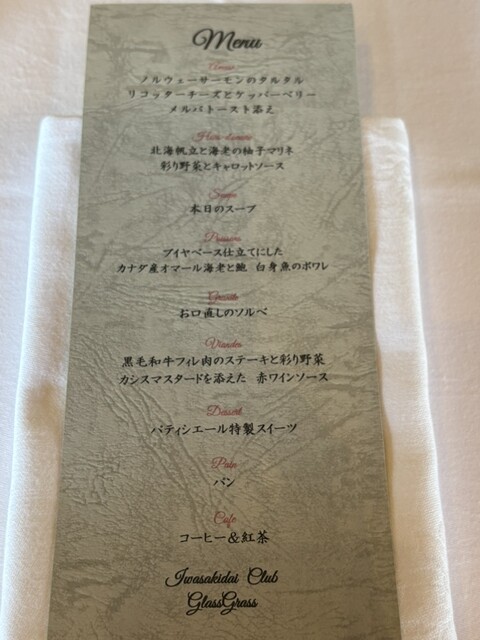 Menu
Amuse
ノルウェーサーモンのタルタル
リコッターチーズとケッパーベリー
メルバトースト添え
Hors-d'œuvre
北海帆立と海老の柚子マリネ
彩り野菜とキャロットソース
Soupe
本日のスープ
Poissons
ブイヤベース仕立てにした
カナダ産オマール海老と鮑 白身魚のポワレ
Granité
お口直しのソルベ
Viandes
黒毛和牛フィレ肉のステーキと彩り野菜
カシスマスタードを添えた 赤ワインソース
Dessert
パティシエール特製スイーツ
Pain
パン
Cafe
コーヒー&紅茶
Iwasakidai Club
GlassGrass